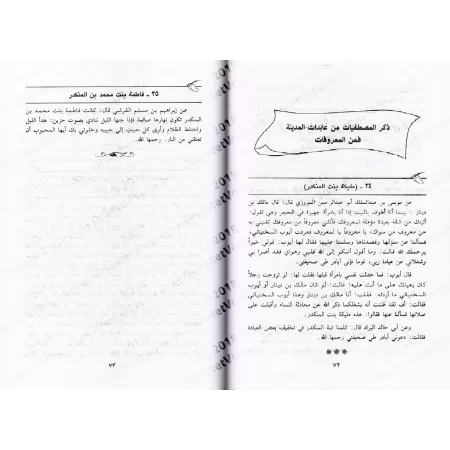 ذكر المصطفيات من عابدات المدينة
فمن المعروفات
٣٤ - (مليكة بنت المنكدر)
عن موسى بن عبدالملك أبو عبدالرحمن المروزي قال: قال مالك بن
دينار - بينما أنا أطوف بالبيت إذا أنا بامرأة جهيرة في الحجر وهي تقول:
أتيتك من شقة بعيدة مؤملة لمعروفك فأنلني معروفاً من معروفك تغنيني به
عن معروف من سواك، يا معروفاً يا لمعروف فعرفت أيوب السختياني،
فسألنا عن منزلها وقصدناها وسلمنا عليها فقال لها أيوب: قولي خيراً
يرحمك الله قالت: وما أقول أشكو إلى الله قلبي وهواي فقد أضرا بي
وشغلاني عن عبادة ربي، قوما فإني أبادر طي صحيفتي.
قال أيوب: فما حدثت نفسي بامرأة قبلها فقلت لها: لو تزوجت رجلاً
كان يعينك على ما أنت عليه؛ قالت: لو كان مالك بن دينار أو أيوب
السختياني ما أردته. فقلت: أنا مالك بن دينار وهذا أيوب السختياني
فقالت: أف لقد ظننت أنه يشغلكما ذكر الله عن محادثة النساء وأقبلت على
صلاتها فسألنا عنها فقالوا: هذه مليكة بنت المنكدر.
وعن أبي خالد البراد قال: كلمنا ابنة المنكدر في تخفيف بعض العبادة
فقالت: دعوني أبادر طي صحيفتي رحمها الله.
***
٧٢
٣٥ - فاطمة بنت محمد بن المنكدر
عن إبراهيم بن مسلم القرشي قال: كانت فاطمة بنت محمد بن
المنكدر تكون نهارها صائمة فإذا جنها الليل تنادي بصوت حزين: هدأ الليل
واختلط الظلام وأوى كل حبيب إلى حبيبه وخلوتي بك أيها المحبوب أن
تعتقني من النار. رحمها الله.
٧٣